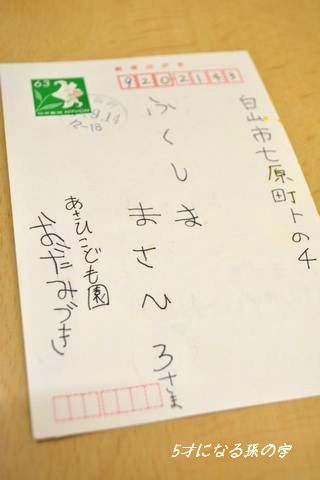 郵便はがき
63
NIPPON
9202143
9.14
白山市七原町トの4
ふくしま
まさひろさま
あさひこども園
おだみづき
5才になる孫の字